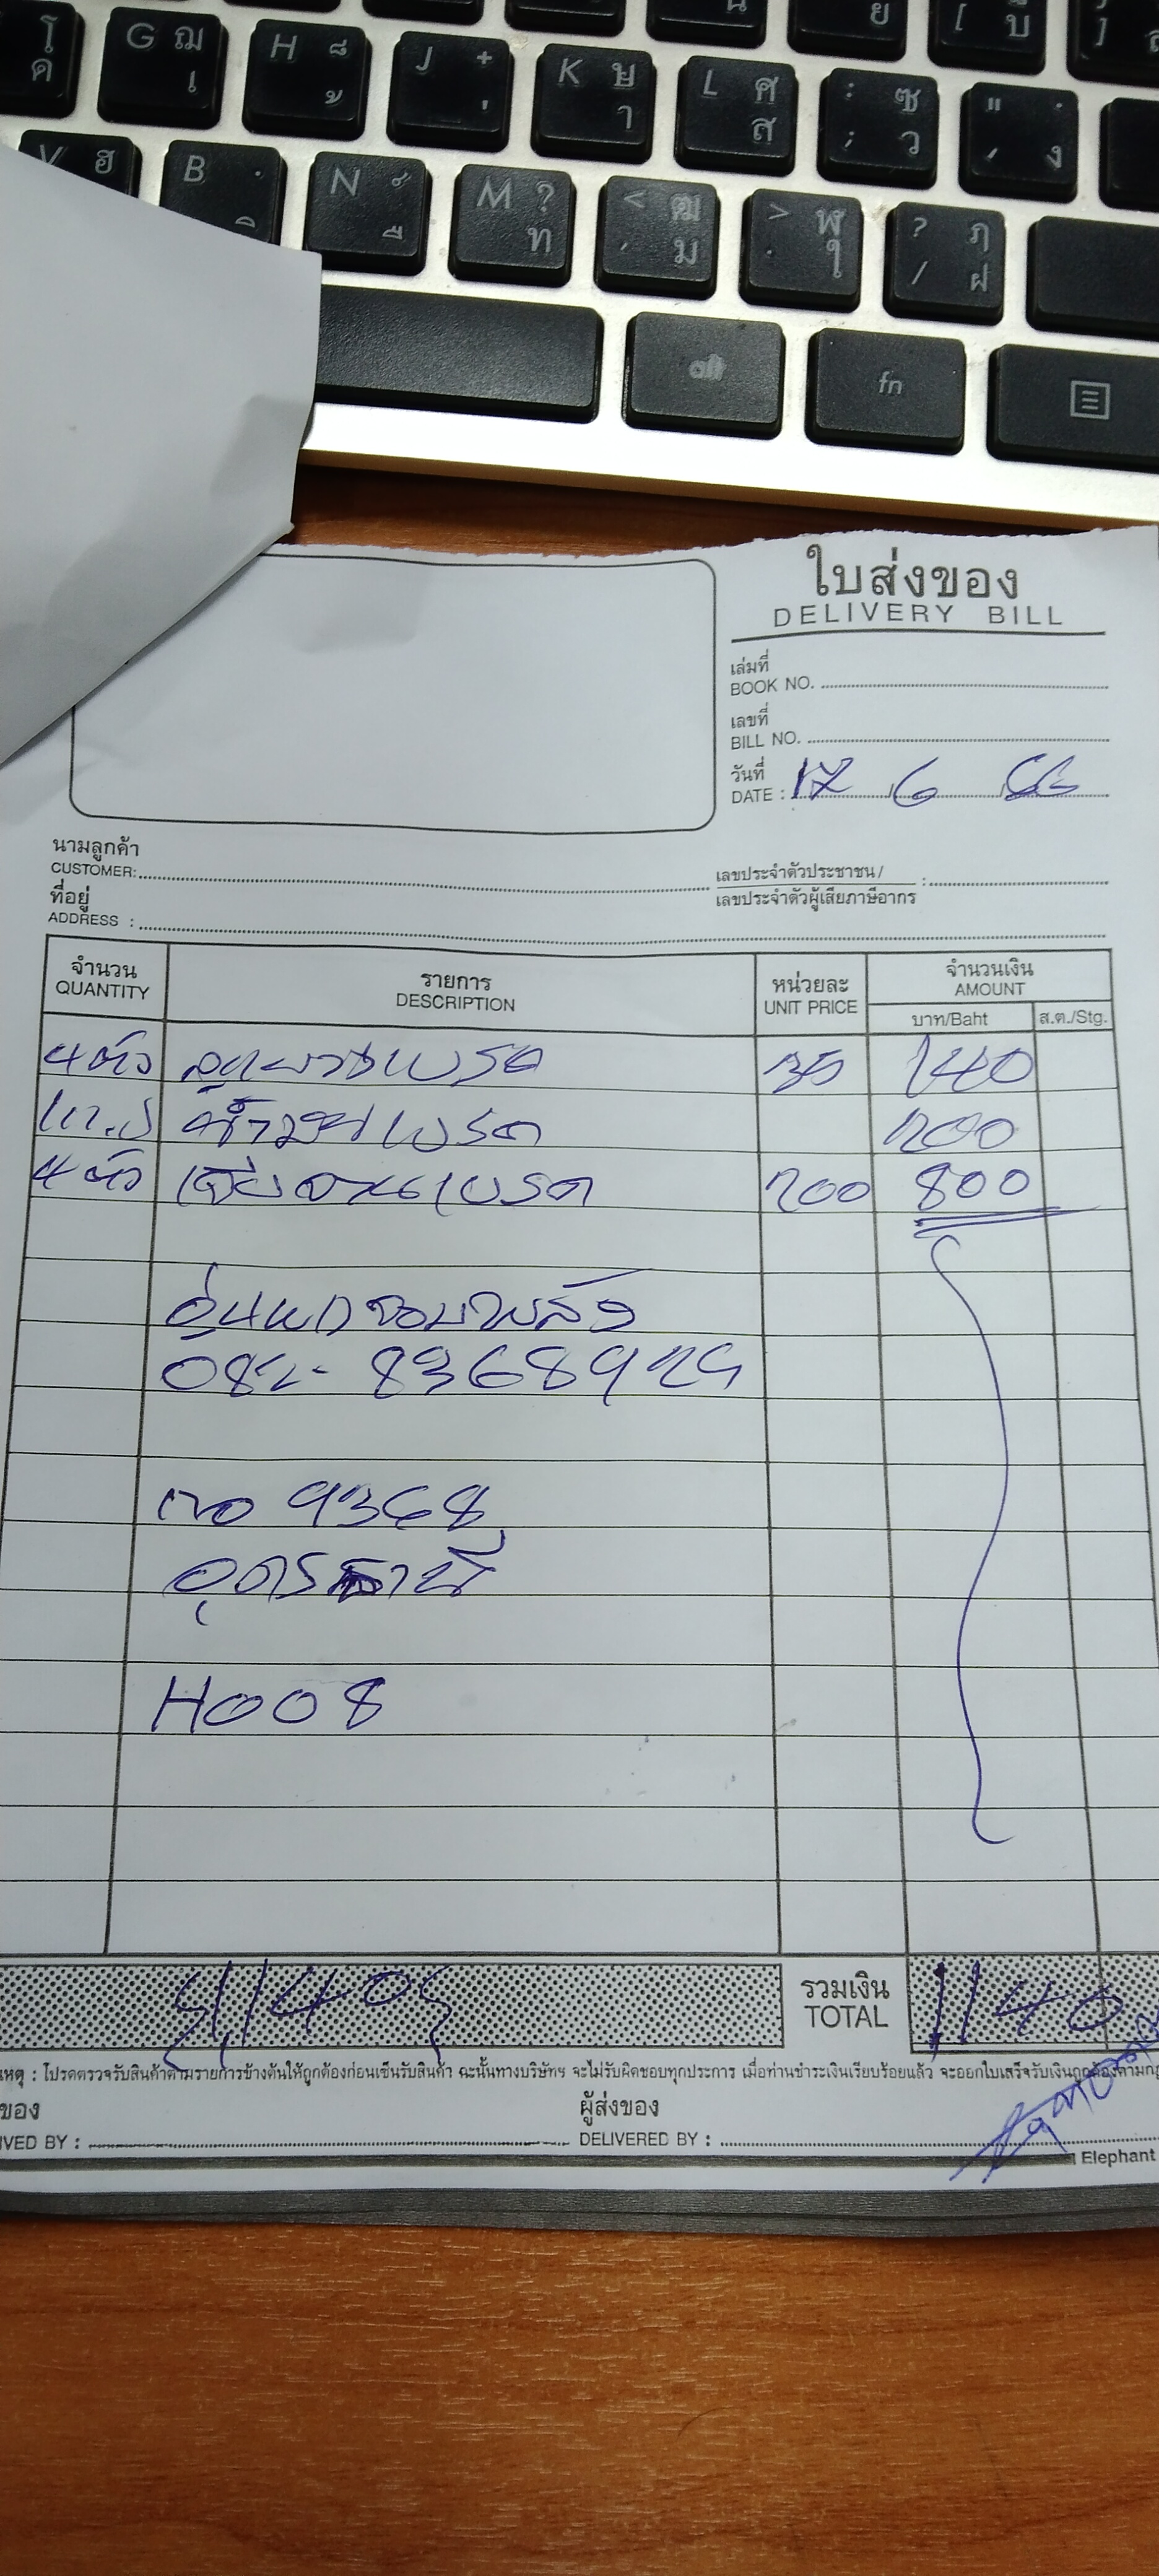 โ
ด
G ฌ
เ
H ็
้
J ๋
่
K ษ
า
L ศ
ส
: ซ
; ว
" .
' ง
V ฮ
B ฺ
ิ
N ์
ื
M ?
ท
< ฒ
, ม
> ฬ
. ใ
? ฦ
/ ฝ
alt
fn
ใบส่งของ
DELIVERY BILL
เล่มที่
BOOK NO.
เลขที่
BILL NO.
วันที่
DATE : 17 6 66
นามลูกค้า
CUSTOMER:
เลขประจำตัวประชาชน/
เลขประจำตัวผู้เสียภาษีอากร :
ที่อยู่
ADDRESS :
จำนวน รายการ หน่วยละ จำนวนเงิน
QUANTITY DESCRIPTION UNIT PRICE AMOUNT
บาท/Baht ส.ต./Stg.
4 ตัว ลูกยางเบรค 35 140
น้ำมันเบรค 200
4 ตัว เบรค 200 800
9368
อุดรธานี
H008
1140 รวมเงิน 1140
TOTAL
เหตุ : โปรดตรวจรับสินค้าตามรายการข้างต้นให้ถูกต้องก่อนเซ็นรับสินค้า ฉะนั้นทางบริษัทฯ จะไม่รับผิดชอบทุกประการ เมื่อท่านชำระเงินเรียบร้อยแล้ว จะออกใบเสร็จรับเงินถูกต้องตามกฎ
ของ ผู้ส่งของ
IVED BY : DELIVERED BY :
Elephant